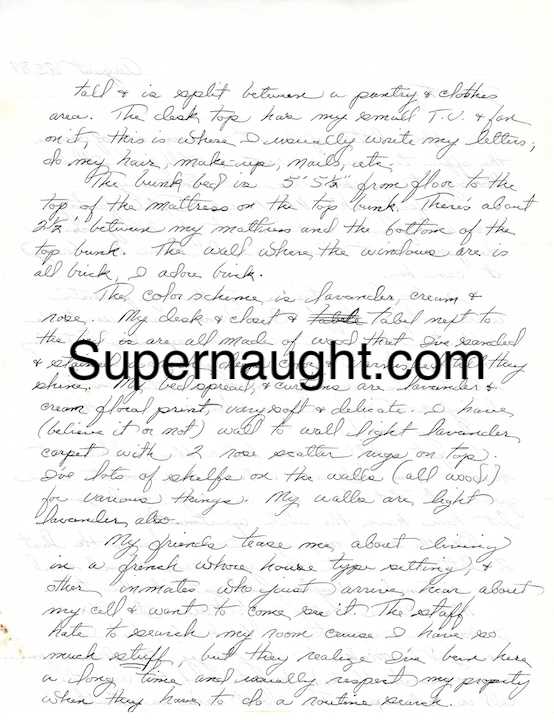 tall & is split between a pantry & clothes
area. The desk top has my small T.V. & fan
on it, this is where I usually write my letters,
do my hair, make-up, nails, etc.
The bunk bed is 5' 5½" from floor to the
top of the mattress on the top bunk. There's about
2½' between my mattress and the bottom of the
top bunk. The wall where the windows are is
all brick, I adore brick.
The color scheme is lavender, cream &
rose. My desk & closet & table tabel next to
the bed is are all made of wood that I've sanded
&
they
Supernaught.com
shine. My bedspread, & curtains are lavender &
cream floral print, very soft & delicate. I have
(believe it or not) wall to wall light lavender
carpet with 2 rose scatter rugs on top.
I've lots of shelfs on the walls (all wood)
for various things. My walls are light
lavender also.
My friends tease me about living
in a french whore house type setting, &
other inmates who just arrive hear about
my cell & want to come see it. The staff
hate to search my room cause I have so
much stuff, but they realize I've been here
a long time and usually respect my property
when they have to do a routine search.